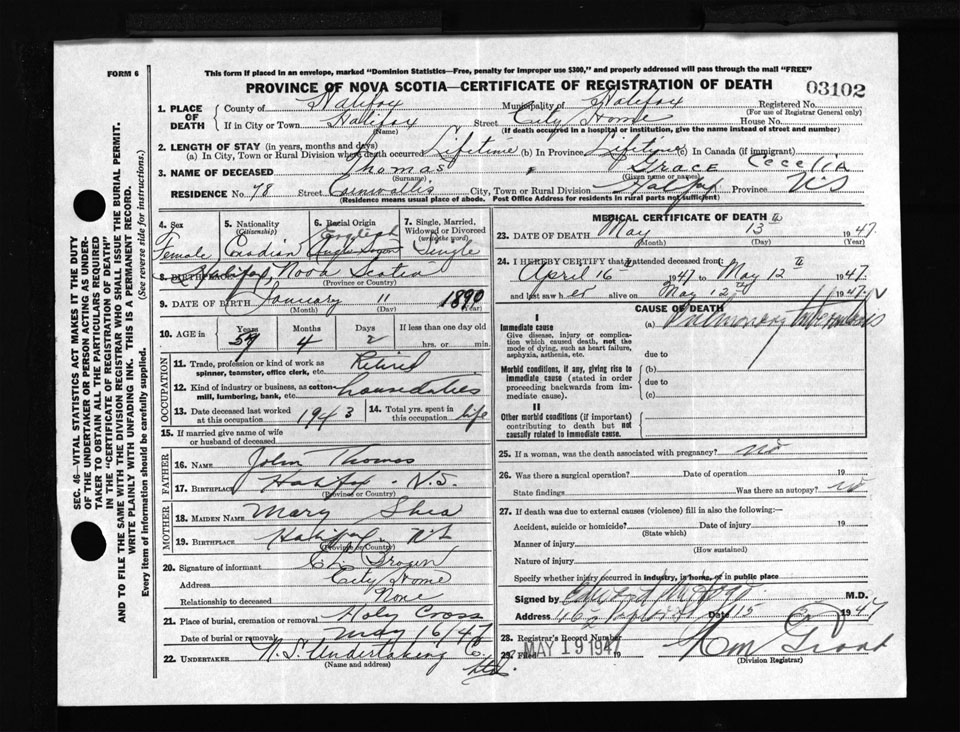 FORM 6
This form if placed in an envelope, marked "Dominion Statistics—Free, penalty for improper use $300," and properly addressed will pass through the mail "FREE"
PROVINCE OF NOVA SCOTIA—CERTIFICATE OF REGISTRATION OF DEATH 03102
1. PLACE OF DEATH County of Halifax Municipality of Halifax Registered No.
(For use of Registrar General only)
If in City or Town Halifax Street City Home House No.
(Name) (If death occurred in a hospital or institution, give the name instead of street and number)
2. LENGTH OF STAY (in years, months and days)
(a) In City, Town or Rural Division where death occurred Lifetime (b) In Province Lifetime (c) In Canada (if immigrant)
3. NAME OF DECEASED Thomas Grace Cecelia
(Surname) (Given name or names)
RESIDENCE No. 78 Street Cornwallis City, Town or Rural Division Halifax Province NS
(Residence means usual place of abode. Post Office Address for residents in rural parts not sufficient)
4. Sex Female
5. Nationality (Citizenship) Canadian
6. Racial Origin English
7. Single, Married, Widowed or Divorced (write the word) Single
8. BIRTHPLACE Halifax Nova Scotia
(Province or Country)
9. DATE OF BIRTH January 11 1890
(Month) (Day) (Year)
10. AGE in Years Months Days If less than one day old
4 2 hrs. or min.
OCCUPATION
11. Trade, profession or kind of work as spinner, teamster, office clerk, etc. Retired
12. Kind of industry or business, as cotton-mill, lumbering, bank, etc. houseduties
13. Date deceased last worked at this occupation 1943 14. Total yrs. spent in this occupation life
15. If married give name of wife or husband of deceased
FATHER
16. NAME John Thomas
17. BIRTHPLACE Halifax - N.S.
(Province or Country)
MOTHER
18. MAIDEN NAME Mary Shea
19. BIRTHPLACE Halifax NS
(Province or Country)
20. Signature of informant
Address City Home
Relationship to deceased None
21. Place of burial, cremation or removal Holy Cross
Date of burial or removal May 16/47
22. UNDERTAKER N.S. Undertaking Co. Ltd.
(Name and address)
MEDICAL CERTIFICATE OF DEATH
23. DATE OF DEATH May 13 1947
(Month) (Day) (Year)
24. I HEREBY CERTIFY that I attended deceased from:
April 16 1947 to May 12 1947
and last saw her alive on May 12th 1947
CAUSE OF DEATH
I
Immediate cause (a) Pulmonary tuberculosis
Give disease, injury or complication which caused death, not the mode of dying, such as heart failure, asphyxia, asthenia, etc. due to
Morbid conditions, if any, giving rise to immediate cause (stated in order proceeding backwards from immediate cause). (b)
due to
(c)
II
Other morbid conditions (if important) contributing to death but not causally related to immediate cause.
25. If a woman, was the death associated with pregnancy? no
26. Was there a surgical operation? Date of operation 19
State findings Was there an autopsy? no
27. If death was due to external causes (violence) fill in also the following:—
Accident, suicide or homicide? Date of injury 19
(State which)
Manner of injury
(How sustained)
Nature of injury
Specify whether injury occurred in industry, in home, or in public place
Signed by M.D.
Address Date 15 1947
28. Registrar's Record Number
29. Filed MAY 19 1947 19
(Division Registrar)
SEC. 46—VITAL STATISTICS ACT MAKES IT THE DUTY OF THE UNDERTAKER OR PERSON ACTING AS UNDERTAKER TO OBTAIN ALL THE PARTICULARS REQUIRED IN THE "CERTIFICATE OF REGISTRATION OF DEATH" AND TO FILE THE SAME WITH THE DIVISION REGISTRAR WHO SHALL ISSUE THE BURIAL PERMIT.
WRITE PLAINLY WITH UNFADING INK. THIS IS A PERMANENT RECORD.
Every item of information should be carefully supplied. (See reverse side for instructions.)